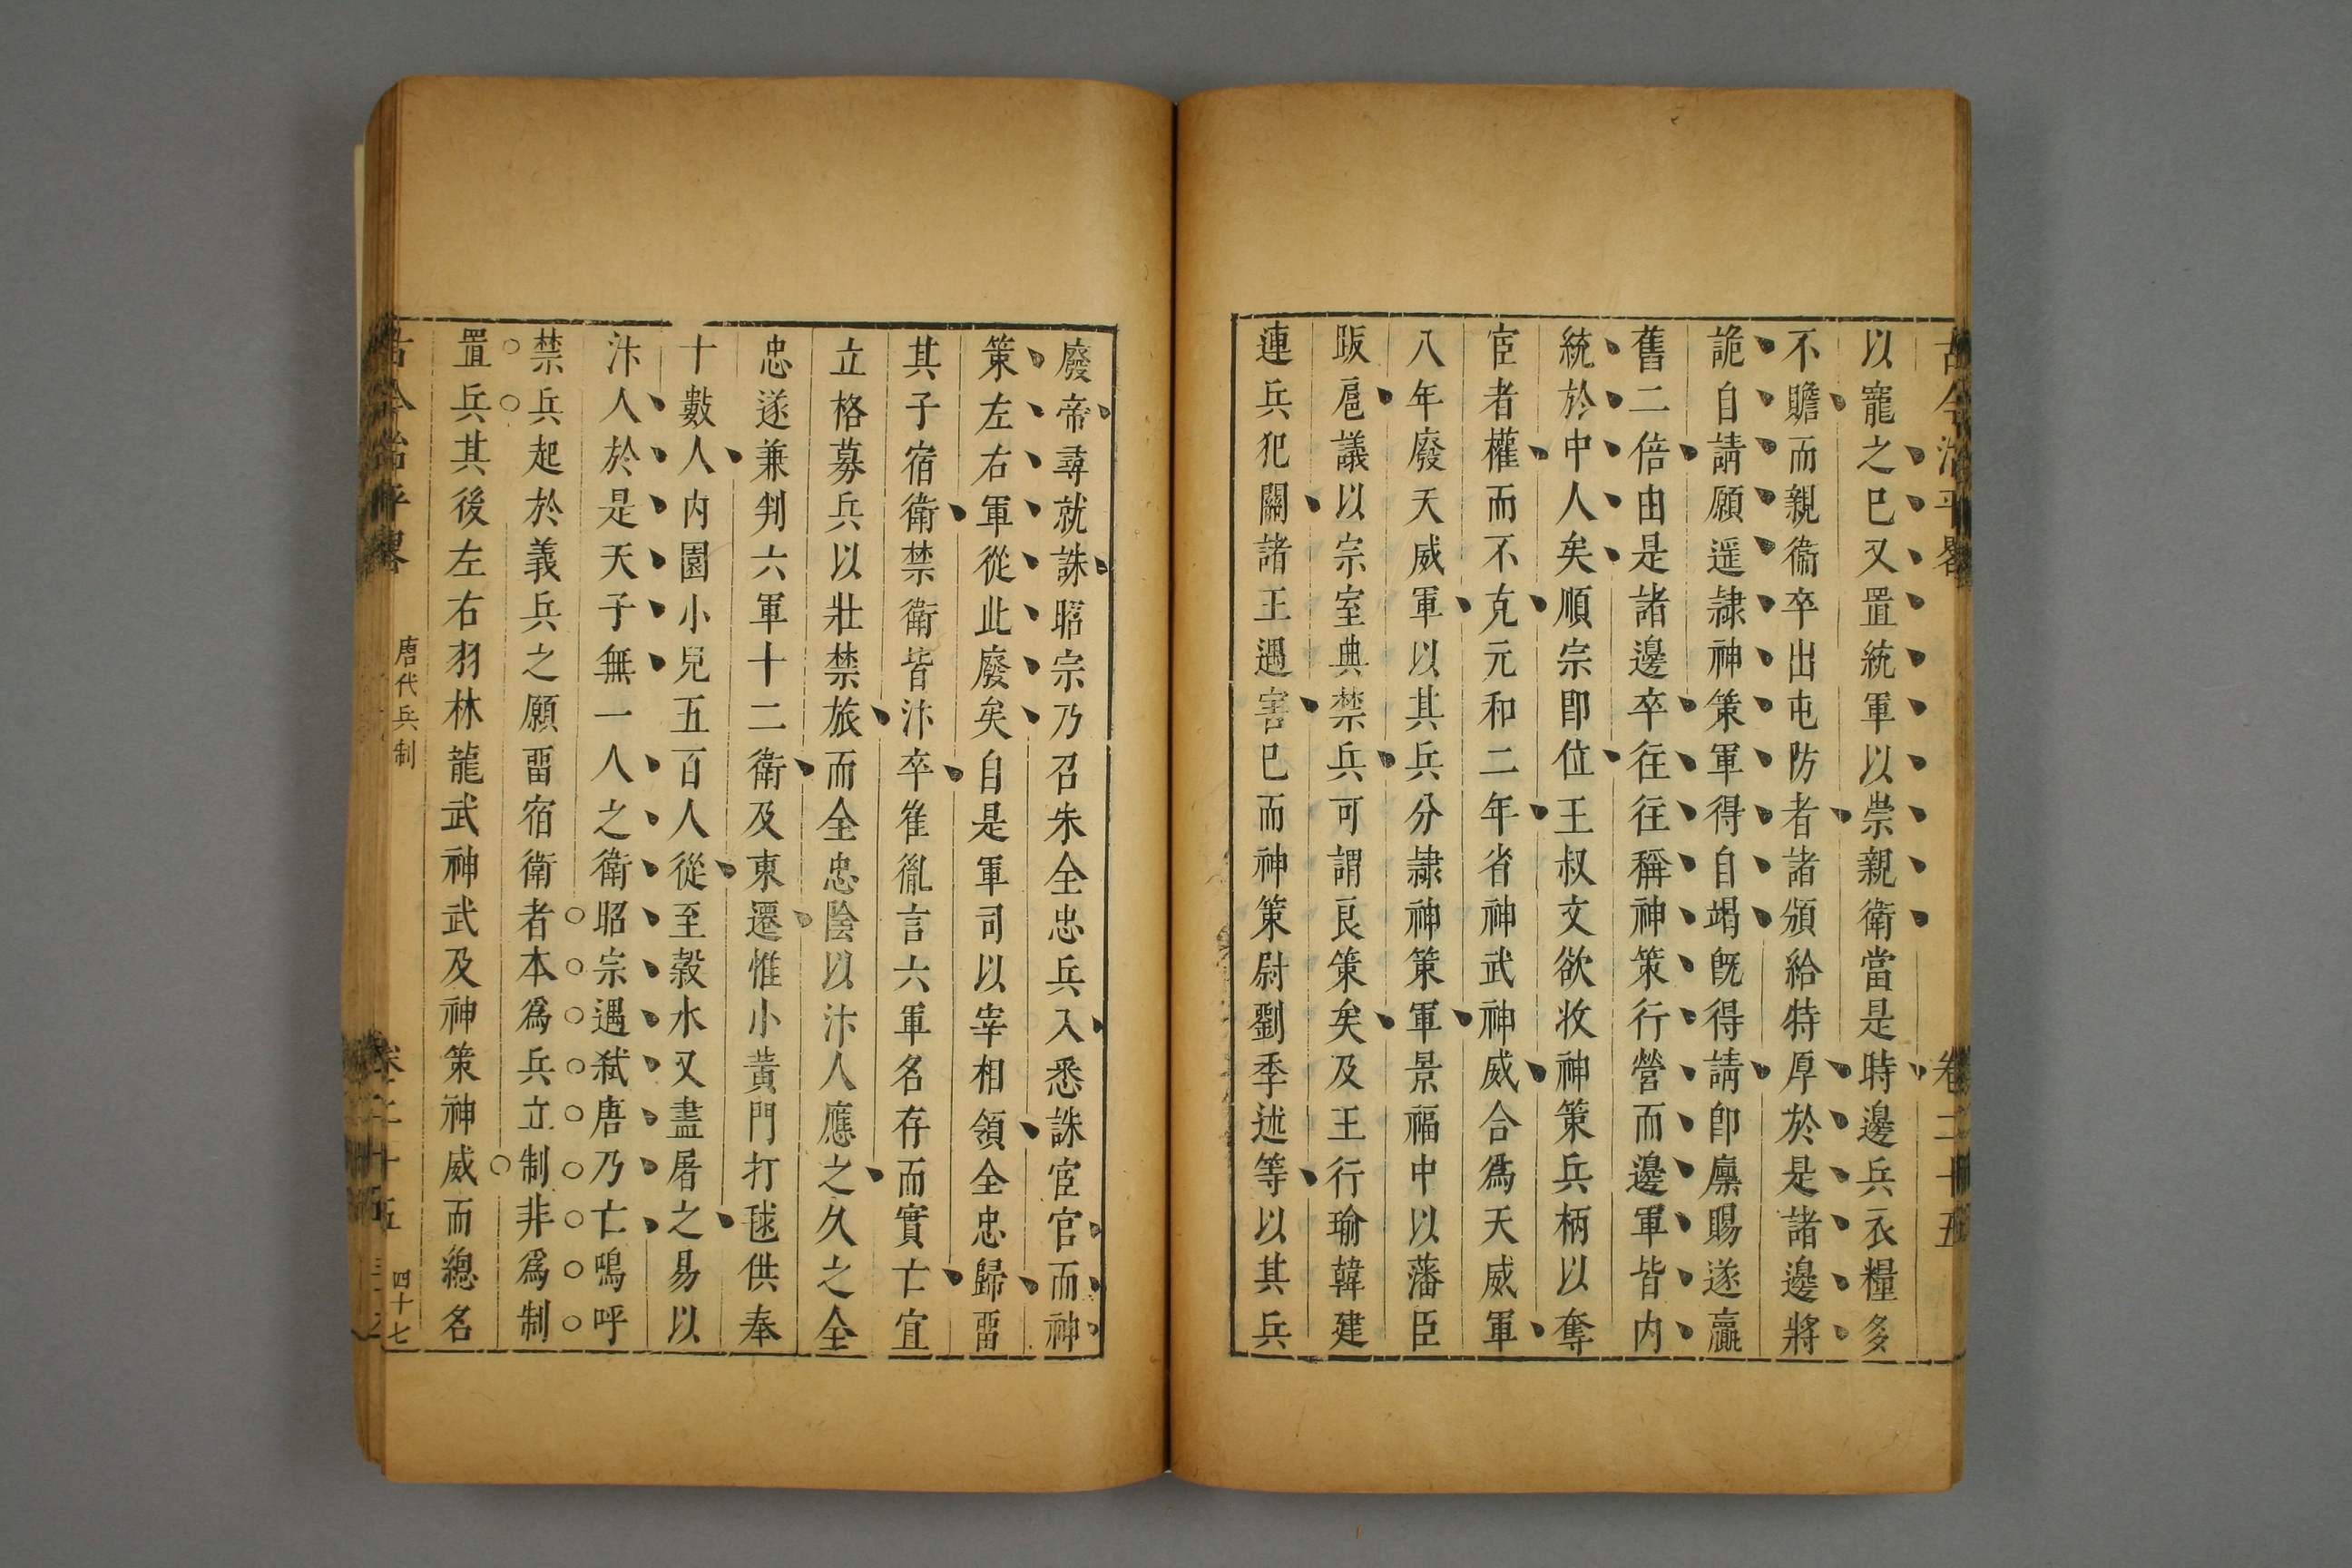 古今治平畧 卷二十五
以寵之巳又置統軍以崇親衛當是時邊兵衣糧多
不贍而親衞卒出屯防者諸頒給特厚於是諸邊將
詭自請願遥隷神策軍得自竭旣得請卽廪賜遂贏
舊二倍由是諸邊卒往往稱神策行營而邊軍皆内
統於中人矣順宗卽位王叔文欲收神策兵柄以奪
宦者權而不克元和二年省神武神威合爲天威軍
八年廢天威軍以其兵分隷神策軍景福中以藩臣
跋扈議以宗室典禁兵可謂良策矣及王行瑜韓建
連兵犯闕諸王遇害巳而神策尉劉季述等以其兵
廢帝尋就誅昭宗乃召朱全忠兵入悉誅宦官而神
策左右軍從此廢矣自是軍司以宰相領全忠歸畱
其子宿衛禁衛皆汴卒隺胤言六軍名存而實亡宜
立格募兵以壯禁旅而全忠陰以汴人應之久之全
忠遂兼判六軍十二衛及東遷惟小黄門打毬供奉
十數人内園小兒五百人從至穀水又盡屠之易以
汴人於是天子無一人之衛昭宗遇弑唐乃亡嗚呼
禁兵起於義兵之願畱宿衛者本爲兵立制非爲制
置兵其後左右羽林龍武神武及神策神威而總名
古今治平畧 唐代兵制 卷二十五 四十七